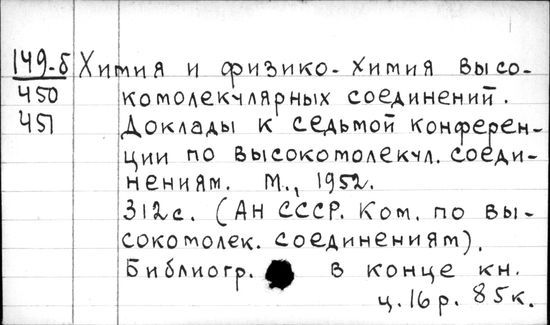 149-б Химия и физико-химия высо-
450 комолекулярных соединений.
451 Доклады к седьмой конферен-
ции по высокомолекул. соеди-
нениям. М., 1952.
312с. (АН СССР. Ком. по вы-
сокомолек. соединениям).
Библиогр. в конце кн.
ц. 16 р. 85 к.